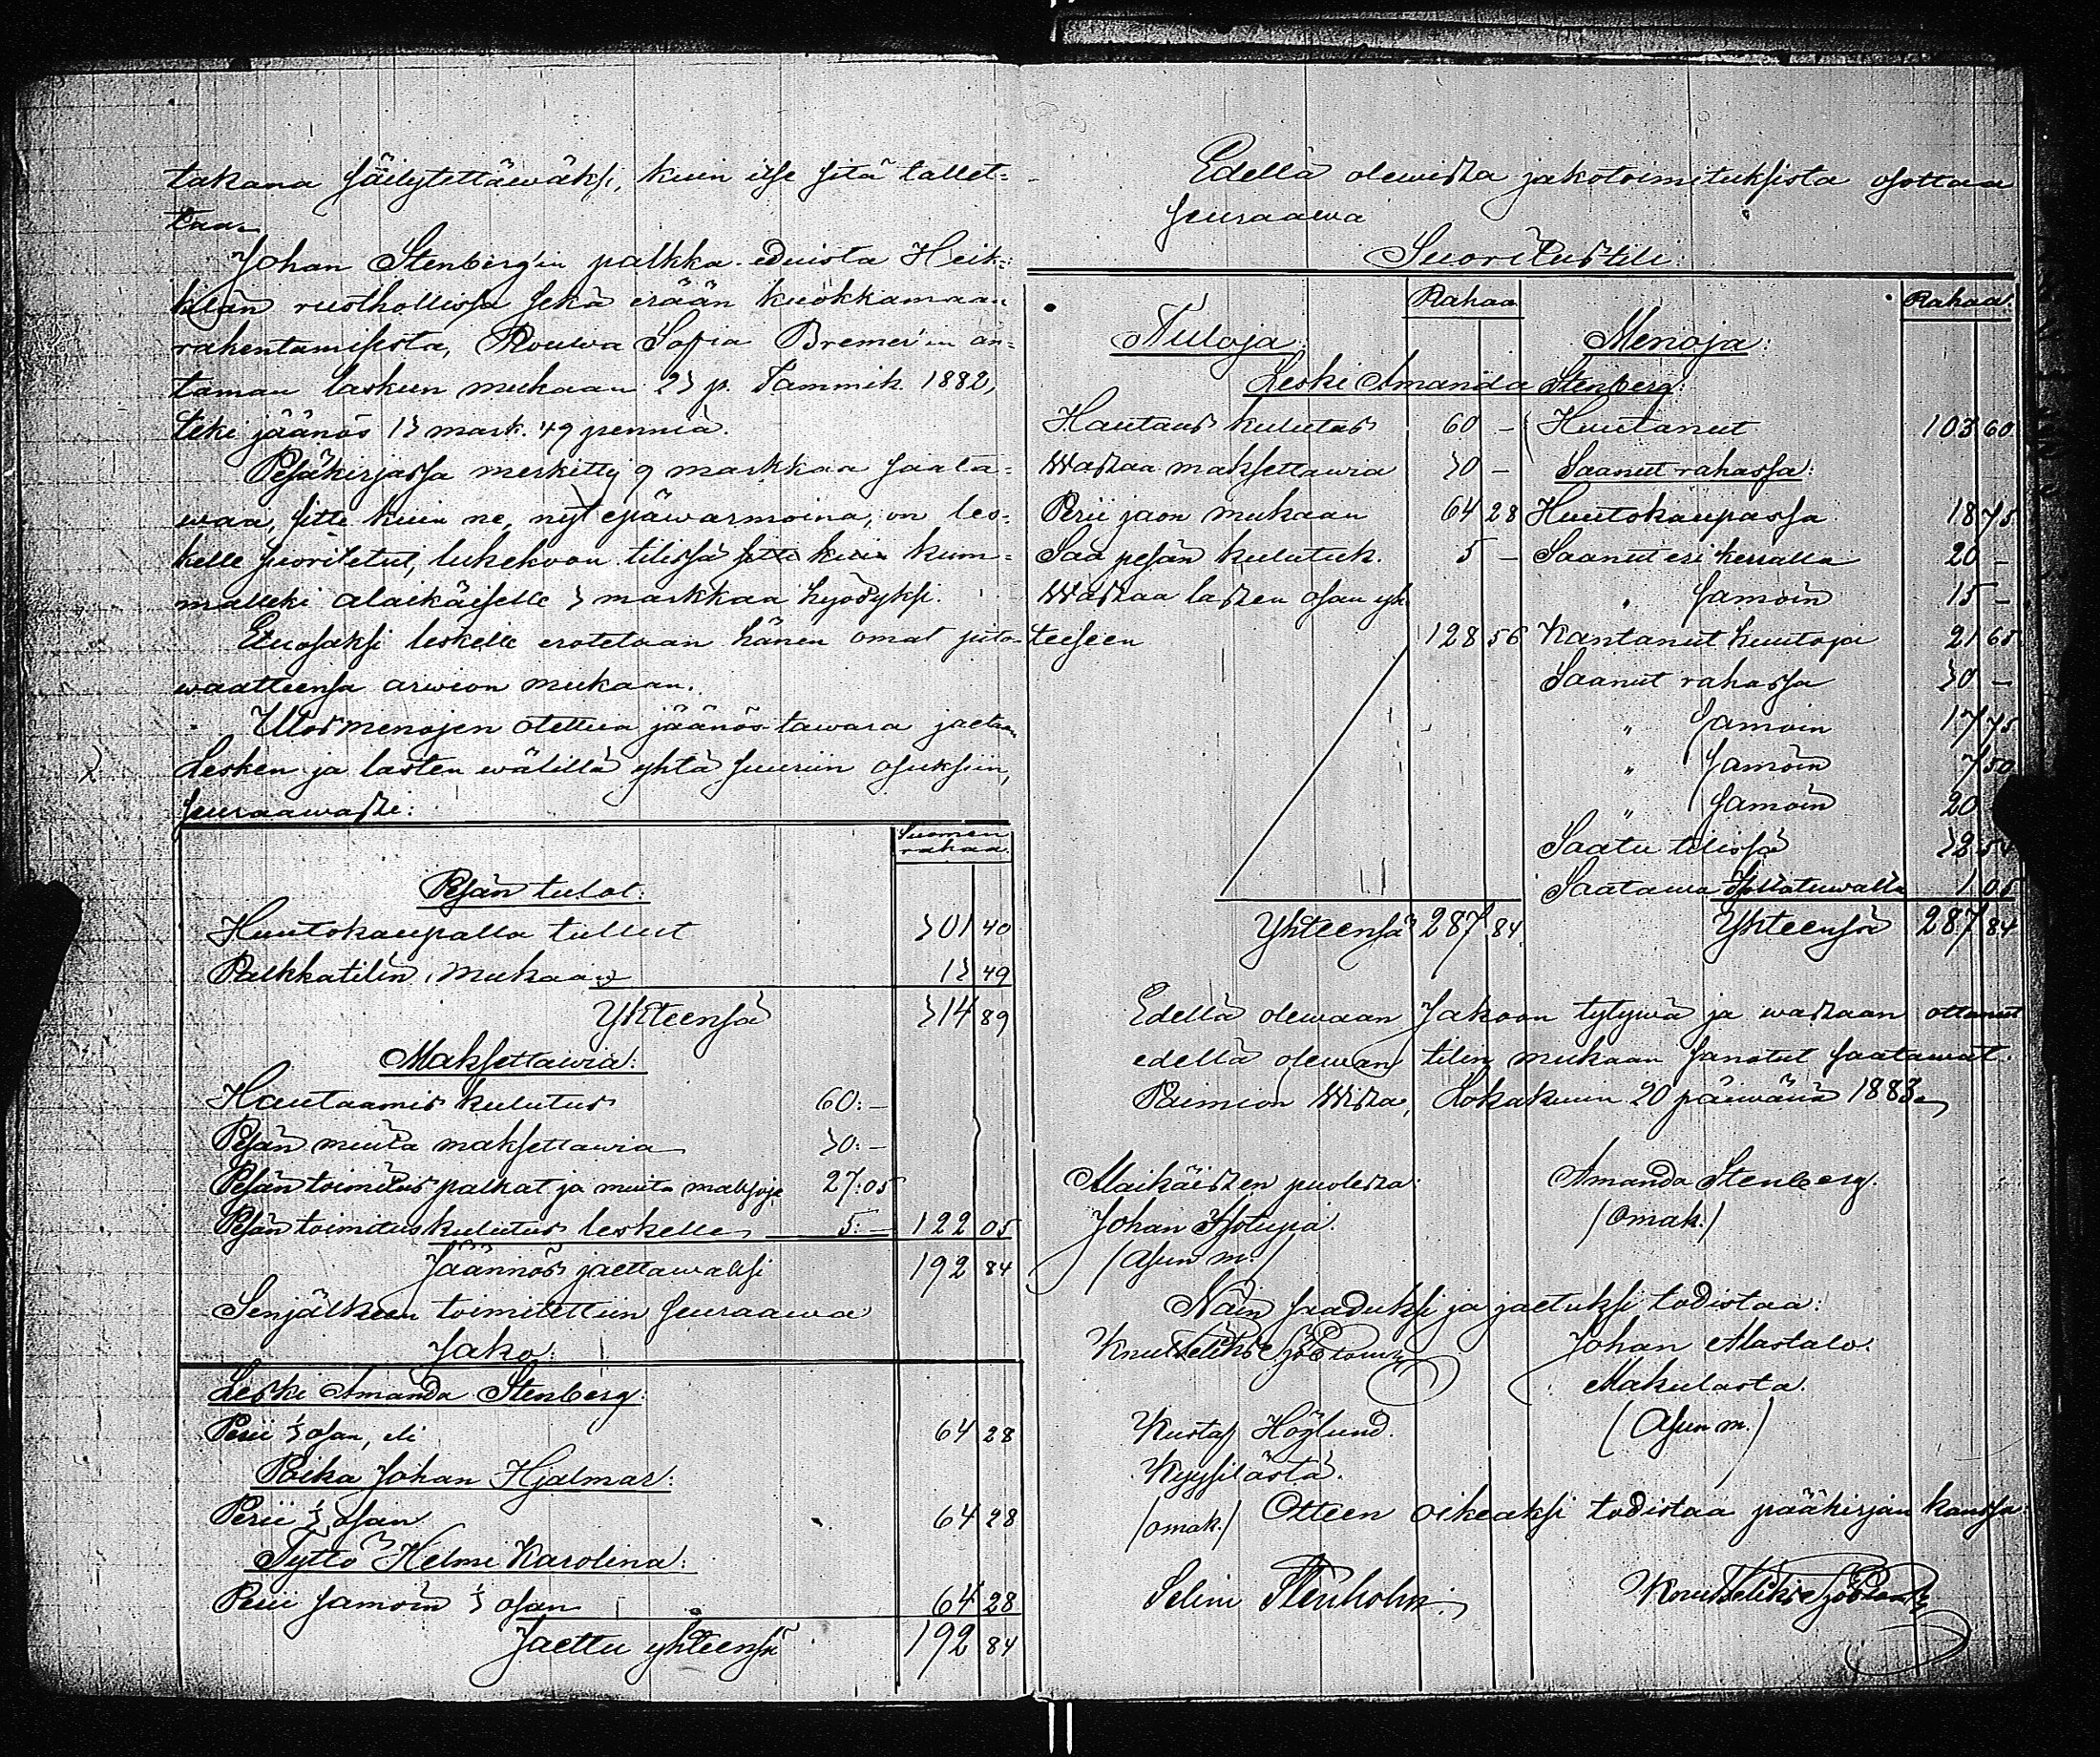 takana säilytettäwäksi, kuin itse sitä tallet-
taa.
Johan Stenberg'in palkka-eduista Heik-
kilän rusthollissa sekä erään kuokkamaan
rahentamisesta, Rouwa Sofia Bremer'in an-
taman laskun mukaan 23 p. Tammik. 1882,
teki jäänös 13 mark. 49 penniä.
Pesäkirjassa merkitty 9 markkaa saata-
waa, sitte kuin ne, nyt epäwarmoina, on les-
kelle suoritetut, lukekoon tilissä kum-
malleki alaikäiselle 3 markkaa hyödyksi.
Etuosaksi leskelle erotetaan hänen omat pito-
waatteensa arwion mukaan.
Ulosmenojen otettua jäänös tawara jaetaan
Lesken ja lasten wälillä yhtä suuriin osuksiin,
seuraawasti:
Suomen
rahaa.
Pesän tulot:
Huutokaupalla tullut 301 40
Palkkatilin mukaan 13 49
Yhteensä 314 89
Maksettawia:
Hautaamis kulutus 60:-
Pesän muita maksettawia 30:-
Pesän toimitus palkat ja muita maksoja 27:05
Pesän toimitus kulutus leskelle 5:- 122 05
Jäännös jaettawaksi 192 84
Senjälkeen toimitettiin seuraawa
Jako:
Leski Amanda Stenberg:
Perii 1/3 osan, eli 64 28
Poika Johan Hjalmar:
Perii 1/3 osan 64 28
Tyttö Helmi Karolina:
Perii samoin 1/3 osan 64 28
Jaettu yhteensä 192 84
Edellä olewista jakotoimituksista osottaa
seuraawa
Suoritustili:
Rahaa Rahaa.
Tuloja: Menoja:
Leski Amanda Stenberg:
Hautaus kulutus 60 - Huutanut 103 60
Wastaa maksettawia 30 - Saanut rahassa:
Perii jaon mukaan 64 28 Huutokaupassa 18 75
Saa pesän kulutuk. 5 - Saanut esi kerralla 20 -
Wastaa lasten osan yh- " samoin 15 -
teeseen 128 56 Kantanut huutoja 21 65
Saanut rahassa 30 -
" samoin 17 75
" samoin 7 50
" samoin 20
Saatu tilissä 32 54
Saatawa 1 05
Yhteensä 287 84 Yhteensä 287 84
Edellä olewaan Jakoon tytywä ja wastaan ottanut
edellä olewan tilin mukaan sanotut saatawat.
Paimion Wista, Lokakuun 20 päiwänä 1883.
Alaikäisten puolesta: Amanda Stenberg.
Johan (omak.)
(Asun m.)
Näin saaduksi ja jaetuksi todistaa:
Knut Johan Alastalo.
Makulasta.
Kustaf Höglund. (Asun m.)
Kyysilästä.
(omak.) Otteen oikeaksi todistaa pääkirjan kanssa:
Selim Stenholm. Knut